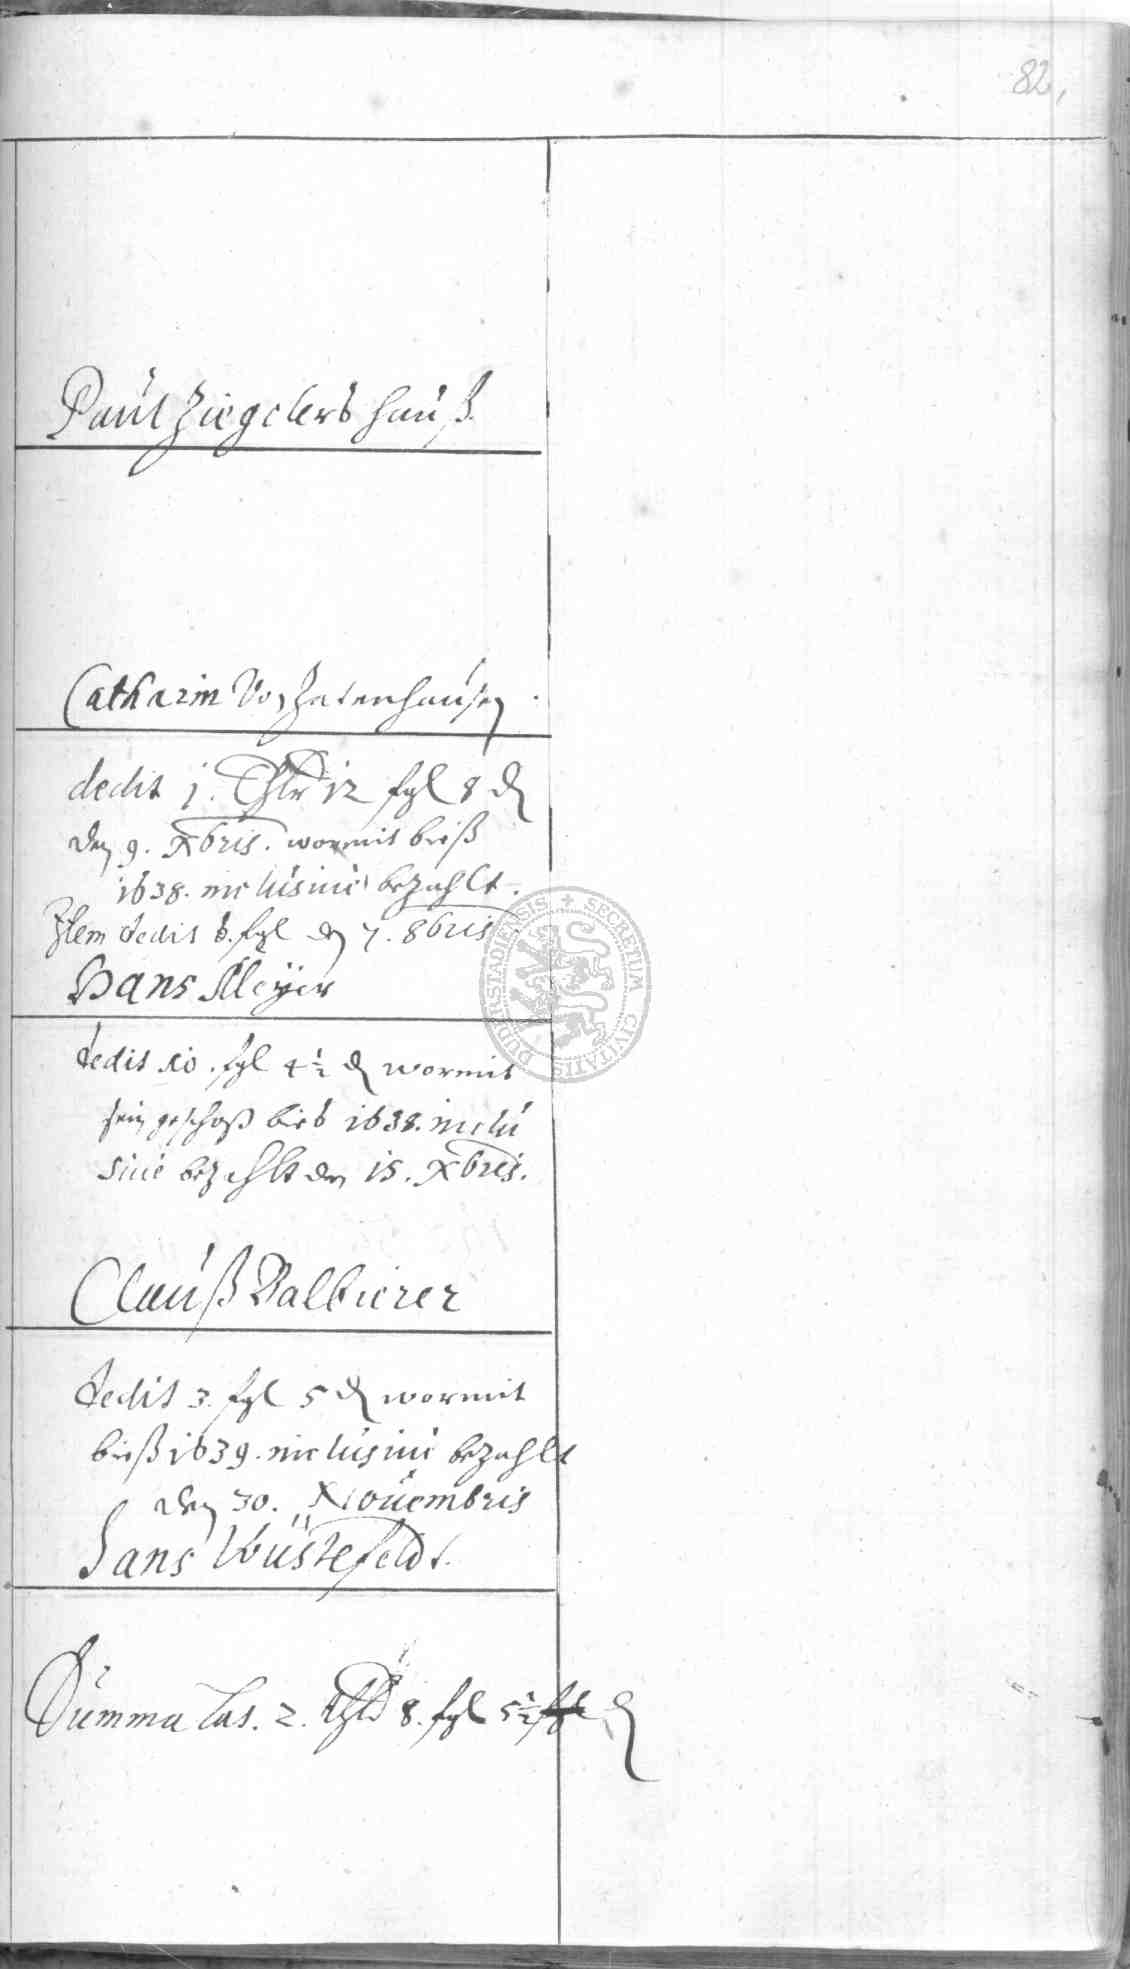 82,
Paul Ziegelers hauß
Catharin Von Hatenhausen
dedit 1. Thlr 12 sgl 8 d
den 9. Xbris. wormit bieß
1638. inclusiue bezahlt.
Item dedit 6. sgl den 7. 8bris
Hans Meÿer
dedit 10. sgl 4½ d wormit
sein geschoß bies 1638. inclu
siue bezahlt den 15. Xbris.
Clauß Balbierer
dedit 3. sgl 5 d wormit
bieß 1639. inclusiue bezahlt
den 30. Nouembris
Hans Wüstefeldt.
Summa Lat. 2. thlr 8. sgl 5½ d
SECRETUM CIVITATIS DUDERSTADIENSIS